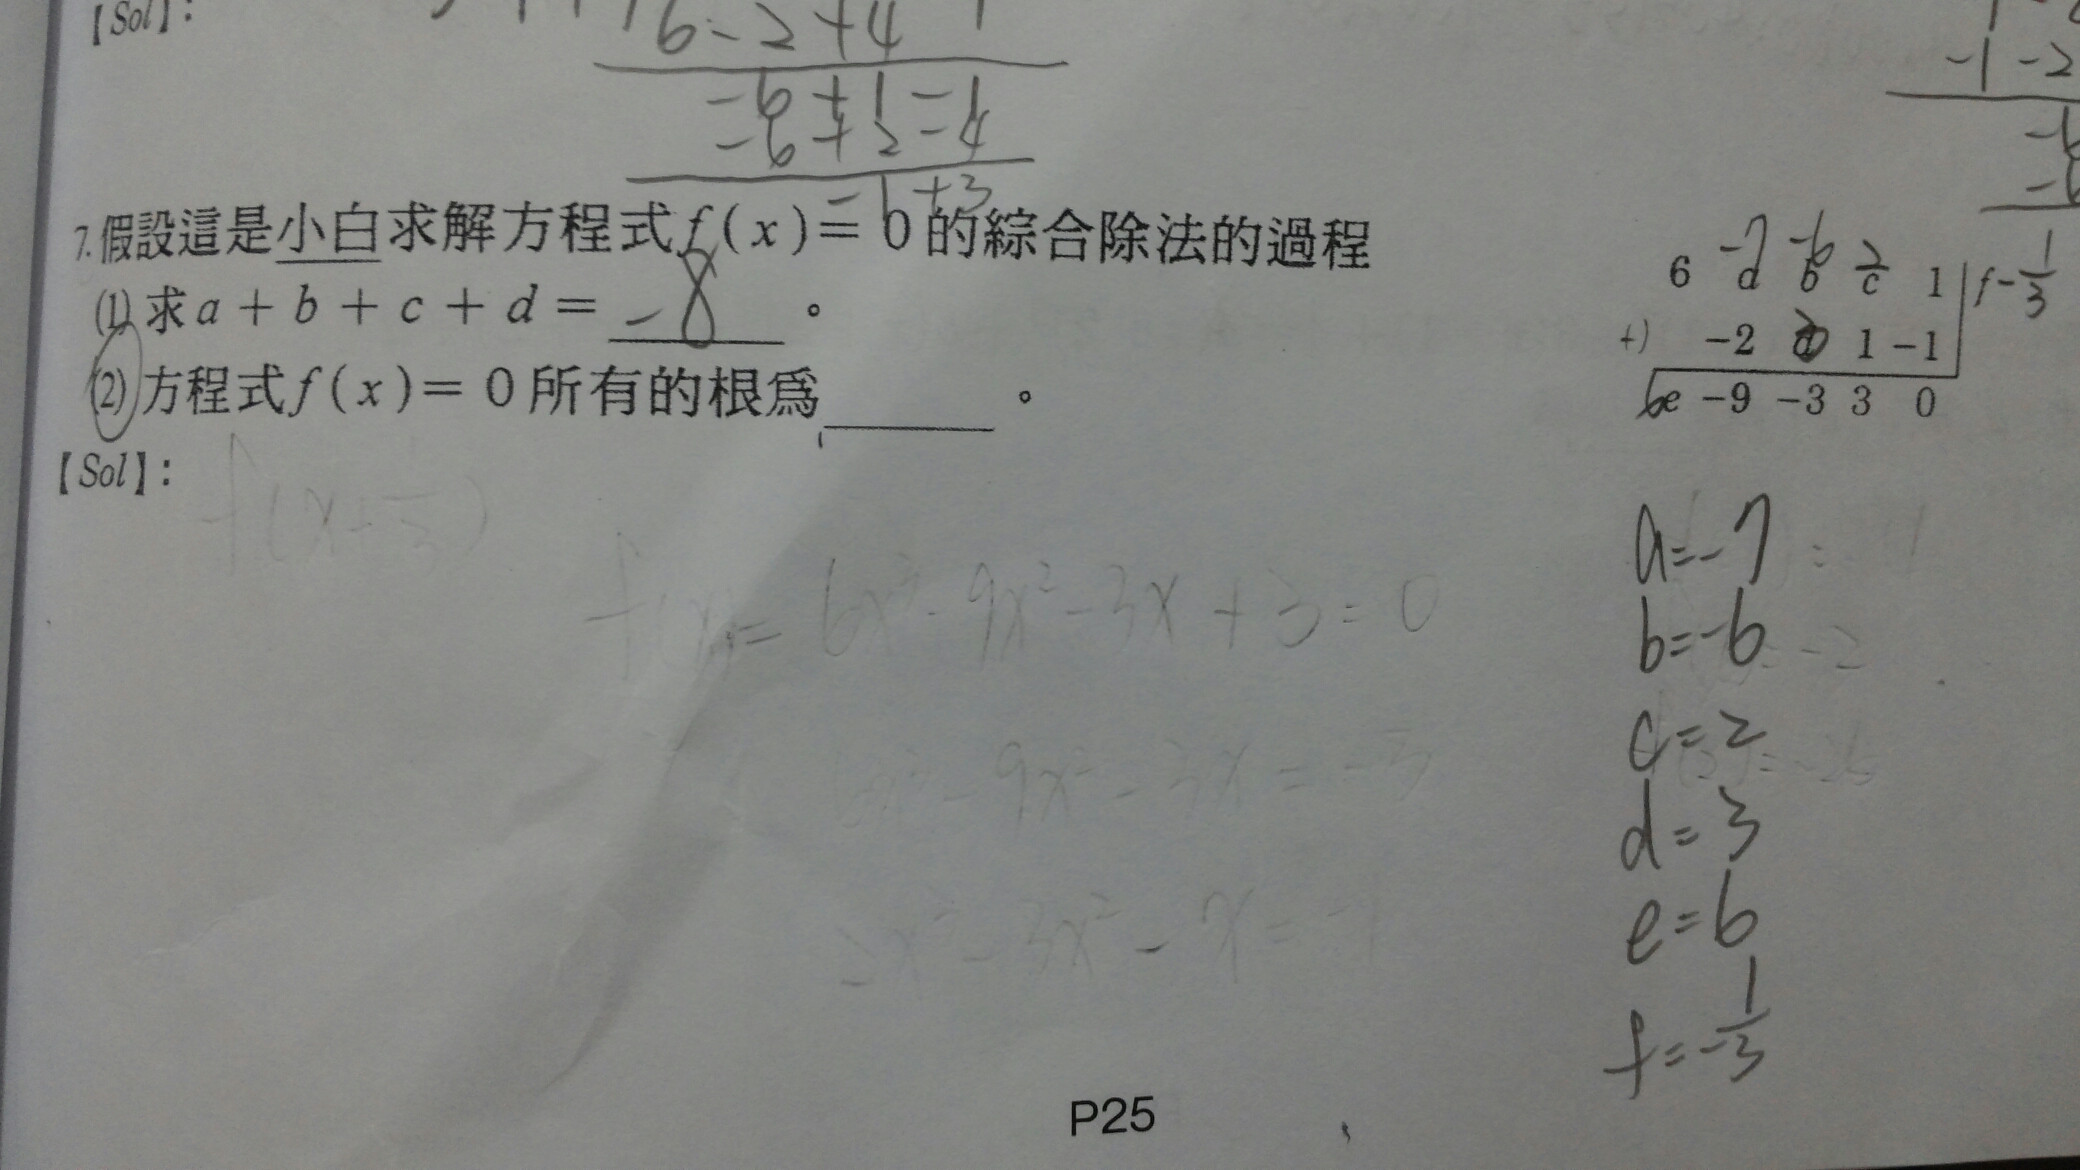 【Sol】:
6-2+4
-6+1-1
-6+2-4
-6+3
-1-2
7.假設這是小白求解方程式f(x)=0的綜合除法的過程
(1)求a+b+c+d= -8 。
(2)方程式f(x)=0所有的根爲______。
-7 -6 2
6 d b c 1 f -1/3
+) -2 1 -1
6 e -9 -3 3 0
【Sol】:
f(x+1/3)
f(x)=6x³-9x²-3x+3=0
6x³-9x²-3x=-3
2x³-3x²-x=-1
a=-7
b=-6
c=2
d=3
e=6
f=-1/3
P25